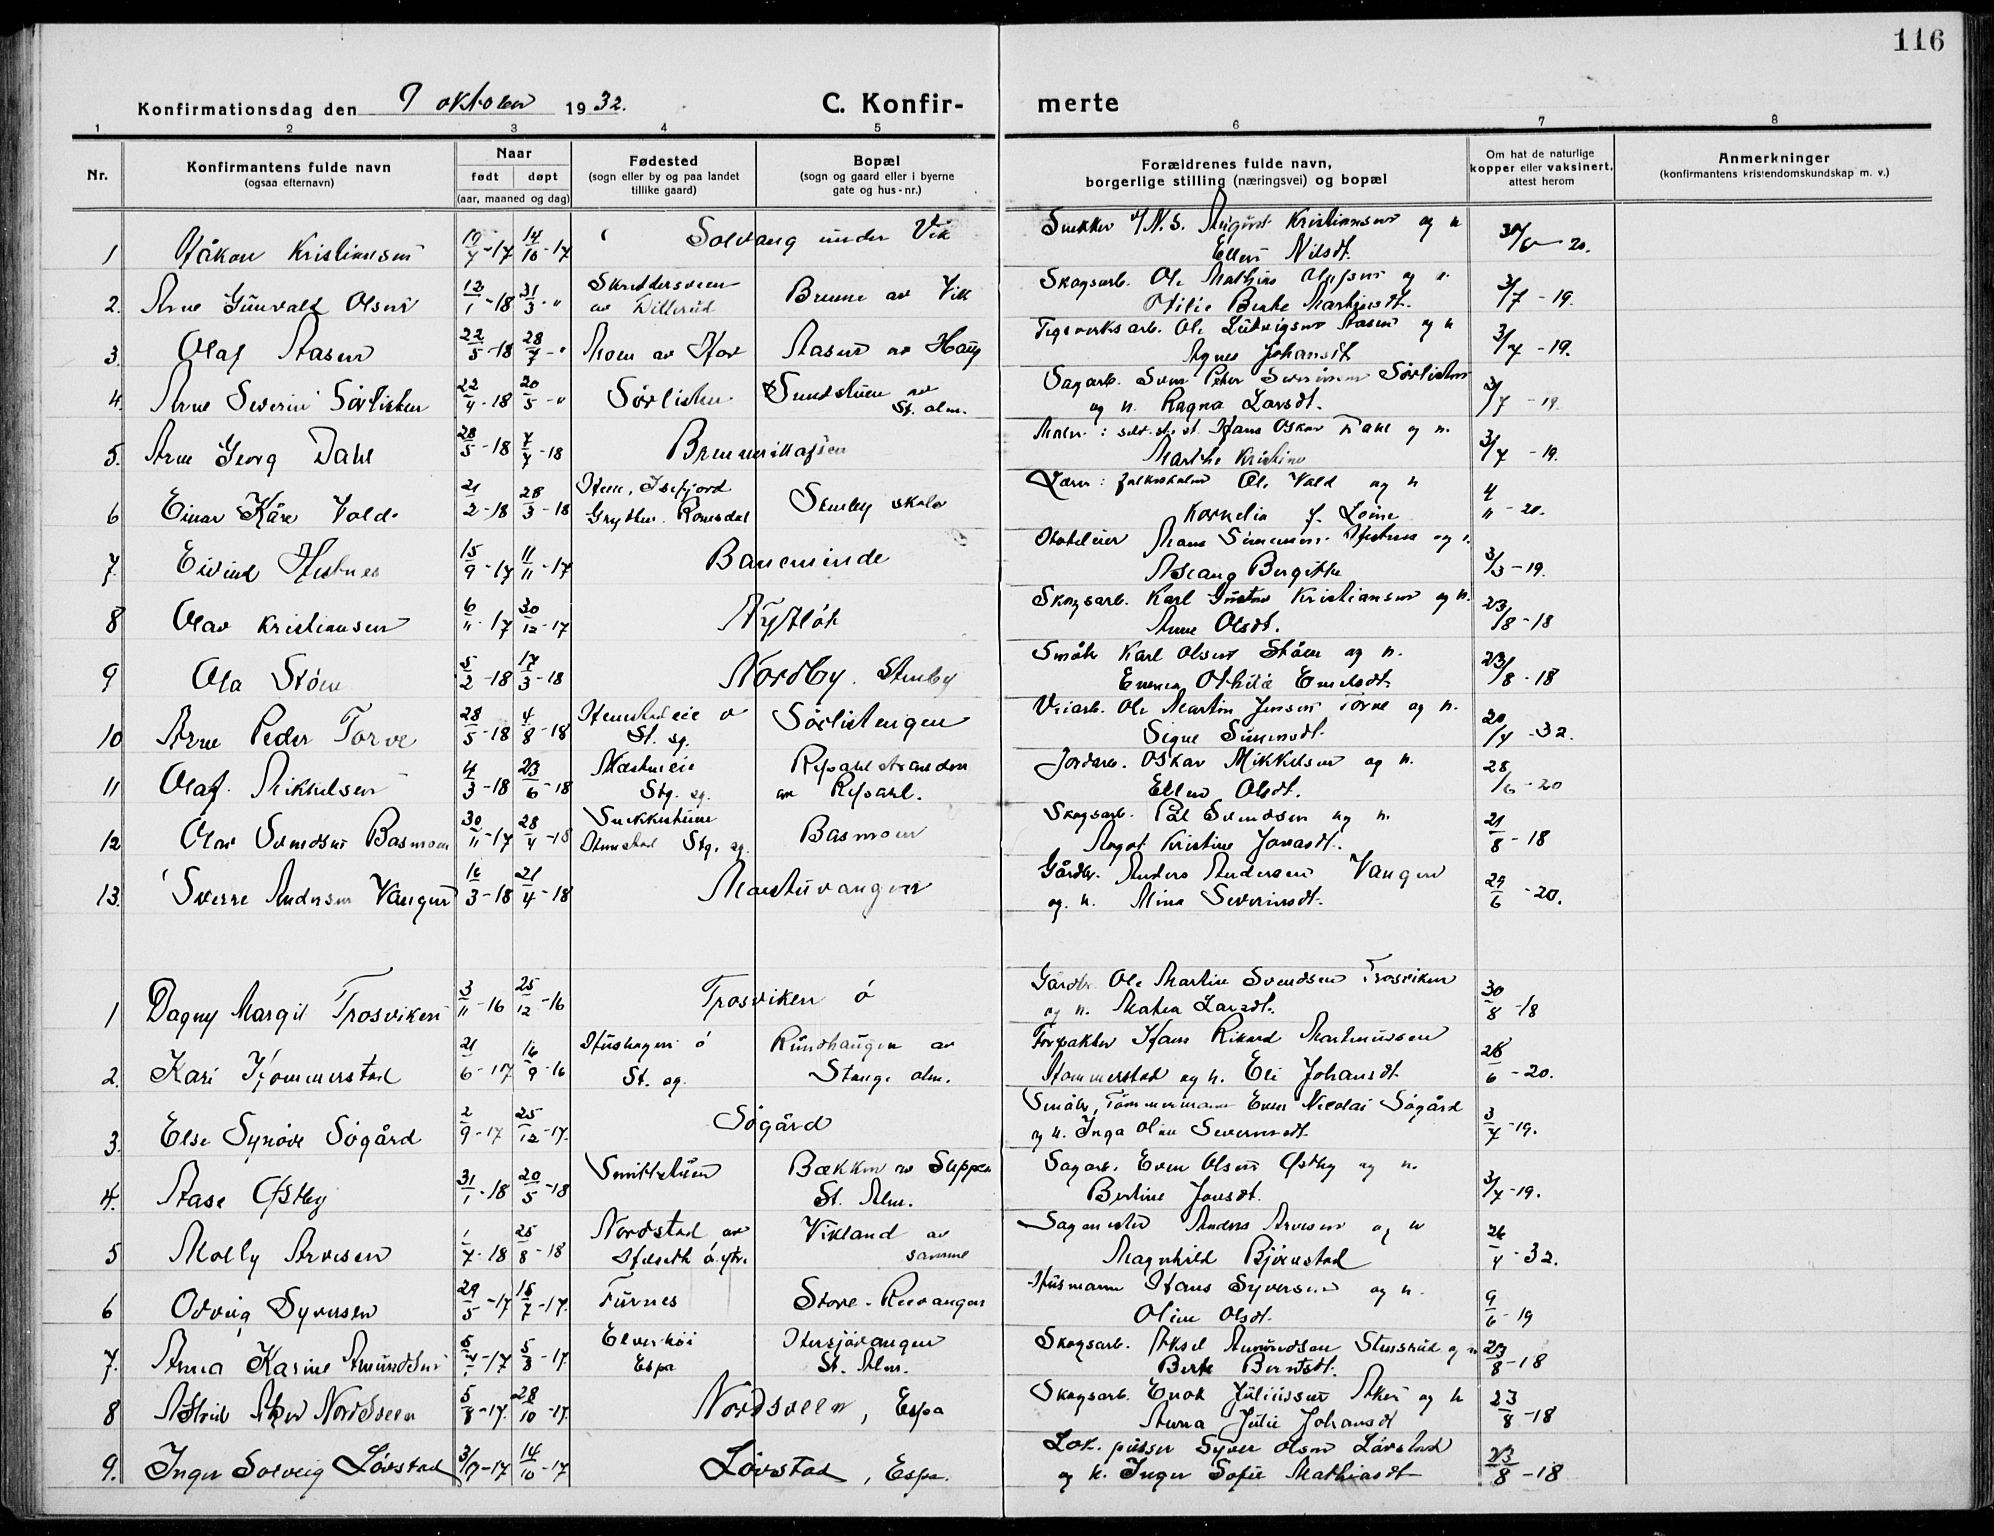 116
Konfirmationsdag den 9 oktober 1932. C. Konfirmerte
1 2 3 4 5 6 7 8
Nr. Konfirmantens fulde navn (ogsaa efternavn) Naar født døpt (aar, maaned og dag) Fødested (sogn eller by og paa landet tillike gaard) Bopæl (sogn og gaard eller i byerne gate og hus-nr.) Forældrenes fulde navn, borgerlige stilling (næringsvei) og bopæl Om hat de naturlige kopper eller vaksinert, attest herom Anmerkninger (konfirmantens kristendomskundskap m. v.)
1 Håkon Kristiansen 14/10-17 Solvang under Vik Snekker August Kristiansen og h Ellen Nilsdt. 20.
2. Arne Gunvald Olsen 12/1-18 31/3-" Skreddersveen av Dillerud Brenne av Vik Skogsarb. Ole Mathias Olufsen og h. Otilie Berte Martinsdt. 3/7-19.
3. Olaf Aasen 22/5-18 28/7-" Moen av Hov Aasen av Haug Teglverksarb. Ole Ludvigsen Aasen og h Agnes Johansdt 3/7-19.
4. Arne Severin Sørlisten 22/4-18 20/5-" Sørlisten Sundstuen av St. alm. Sagarb. Peter Severinsen Sørlisten og h. Ragna Larsdt. 3/7-19.
5. Arne Georg Dahl 28/5-18 7/7-18 Maler: Hans Oskar Dahl og h. Marthe Kristine 3/7-19.
6 Einar Kåre Vold 21/2-18 28/3-18 Hem, Isfjord Grytten Romsdal Stenby skole Lærer: folkeskolen Ole Vold og h Kornelia f. 4/11-20.
7. Eivind Hestnes 15/9-17 11/11-17 Baneminde Hans Simensen Hestnes og h. Aslaug Bergitte 3/3-19.
8 Olav Kristiansen 6/11-17 30/12-17 Nyfløt Skogsarb. Karl Gustav Kristiansen og h. Anne Olsdt. 23/8-18
9 Ola Støen 5/2-18 17/3-18 Nordby. Stenby Småbr. Karl Olsen Støen og h. Emma Othilie 23/8-18
10 Arne Peder Torve 28/5-18 4/8-18 St. sg. Sørlistengen Veiarb. Ole Martin Jensen Torve og h. Signe Simensdt. 20/4-32.
11 Olaf Mikkelsen 4/3-18 23/6-18 Stg. sg. av Refsahl. Jordarb. Oskar Mikkelsen og h. Ellen Olsdt. 28/6-20
12 Olav Svendsen Basmoen 30/11-17 28/4-18 Snekkestuen Stg. sg. Basmoen Skogsarb. Pål Svendsen og h. Agot Kristine Jonasdt. 21/8-18
13. Sverre Andersen Vangen 16/3-18 21/4-18 Gårdbr. Anders Andersen Vangen og h. Mina Severinsdt. 29/6-20.
1 Dagny Margit Trosviken 3/11-16 25/12-16 Trosviken ö Gårdbr. Ole Martin Svendsen Trosviken og h. Mathea Larsdt. 30/8-18
2. Kari Hommerstad 21/6-17 16/9-16 Hushagen ö St. sg. Rundhaugen av Stange alm. Forpakter Hans Rikard Martinussen Hommerstad og h. Eli Johansdt 28/6-20.
3. Else Synøve Søgård 2/9-17 25/12-17. Søgård Småbr, Tømmermann Even Nicolai Søgård og h. Inga Oline Severinsdt. 3/7-19.
4. Aase Østby 31/1-18 20/5-18 Smittstuen Bækken av St. Alm. Sagarb. Even Olsen Østby og h. Bertine Jonsdt. 3/7-19.
5 Molly Arvesen 1/7-18 25/8-18 Nordstad av Vikland av samme Sagmester Anders Arvesen og h Magnhild Bjørnstad 26/4-32.
6 Oddveig Syversen 29/5-17 15/7-17. Furnes Store-Reevangen Husmann Hans Syversen og h. Oline Olsdt. 9/6-19
7. Anna Karine Amundsen 5/3-17. Elverhöi Espa St. Alm. Skogsarb. Aksel Amundsen Stensrud og h Berte Berntsdt. 23/8-18
8 Astrid Aker Nordsveen 5/8-17. 28/10-17. Nordsveen, Espa Skogsarb. Enok Juliussen Aker og h Anna Julie Johansdt 23/8-18
9. Inger Solveig Løvstad 3/9-17 14/10-17 Løvstad, Espa. Lok. pusser Syver Olsen Løvstad og h. Inger Sofie Mathiasdt 23/8-18